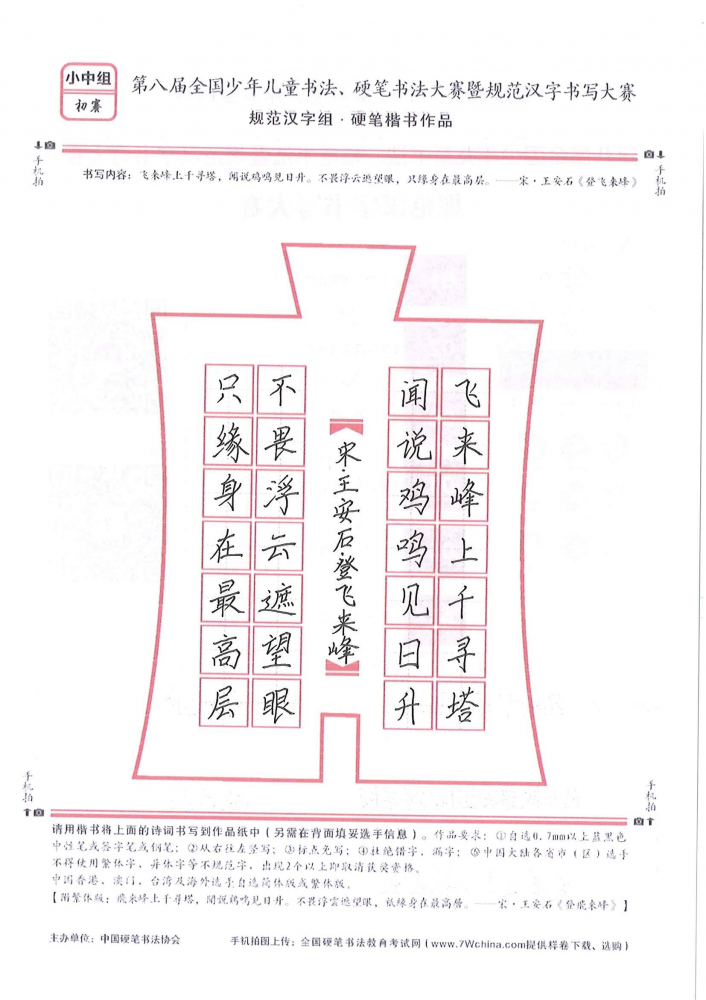 小中组
初赛
第八届全国少年儿童书法、硬笔书法大赛暨规范汉字书写大赛
规范汉字组·硬笔楷书作品
手机拍
手机拍
书写内容：飞来峰上千寻塔，闻说鸡鸣见日升。不畏浮云遮望眼，只缘身在最高层。——宋·王安石《登飞来峰》
飞来峰上千寻塔
闻说鸡鸣见日升
宋·王安石·登飞来峰
不畏浮云遮望眼
只缘身在最高层
手机拍
手机拍
请用楷书将上面的诗词书写到作品纸中（另需在背面填妥选手信息）。作品要求：①自选0.7mm以上蓝黑色
中性笔或签字笔或钢笔；②从右往左竖写；③标点免写；④杜绝错字、漏字；⑤中国大陆各省市（区）选手
不得使用繁体字、异体字等不规范字，出现2个以上即取消获奖资格。
中国香港、澳门、台湾及海外选手自选简体版或繁体版。
【附繁体版：飛来峰上千尋塔，聞説鷄鳴見日升。不畏浮雲遮望眼，祇缘身在最高層。——宋·王安石《登飛来峰》】
主办单位：中国硬笔书法协会
手机拍图上传：全国硬笔书法教育考试网（www.7Wchina.com提供样卷下载、选购）